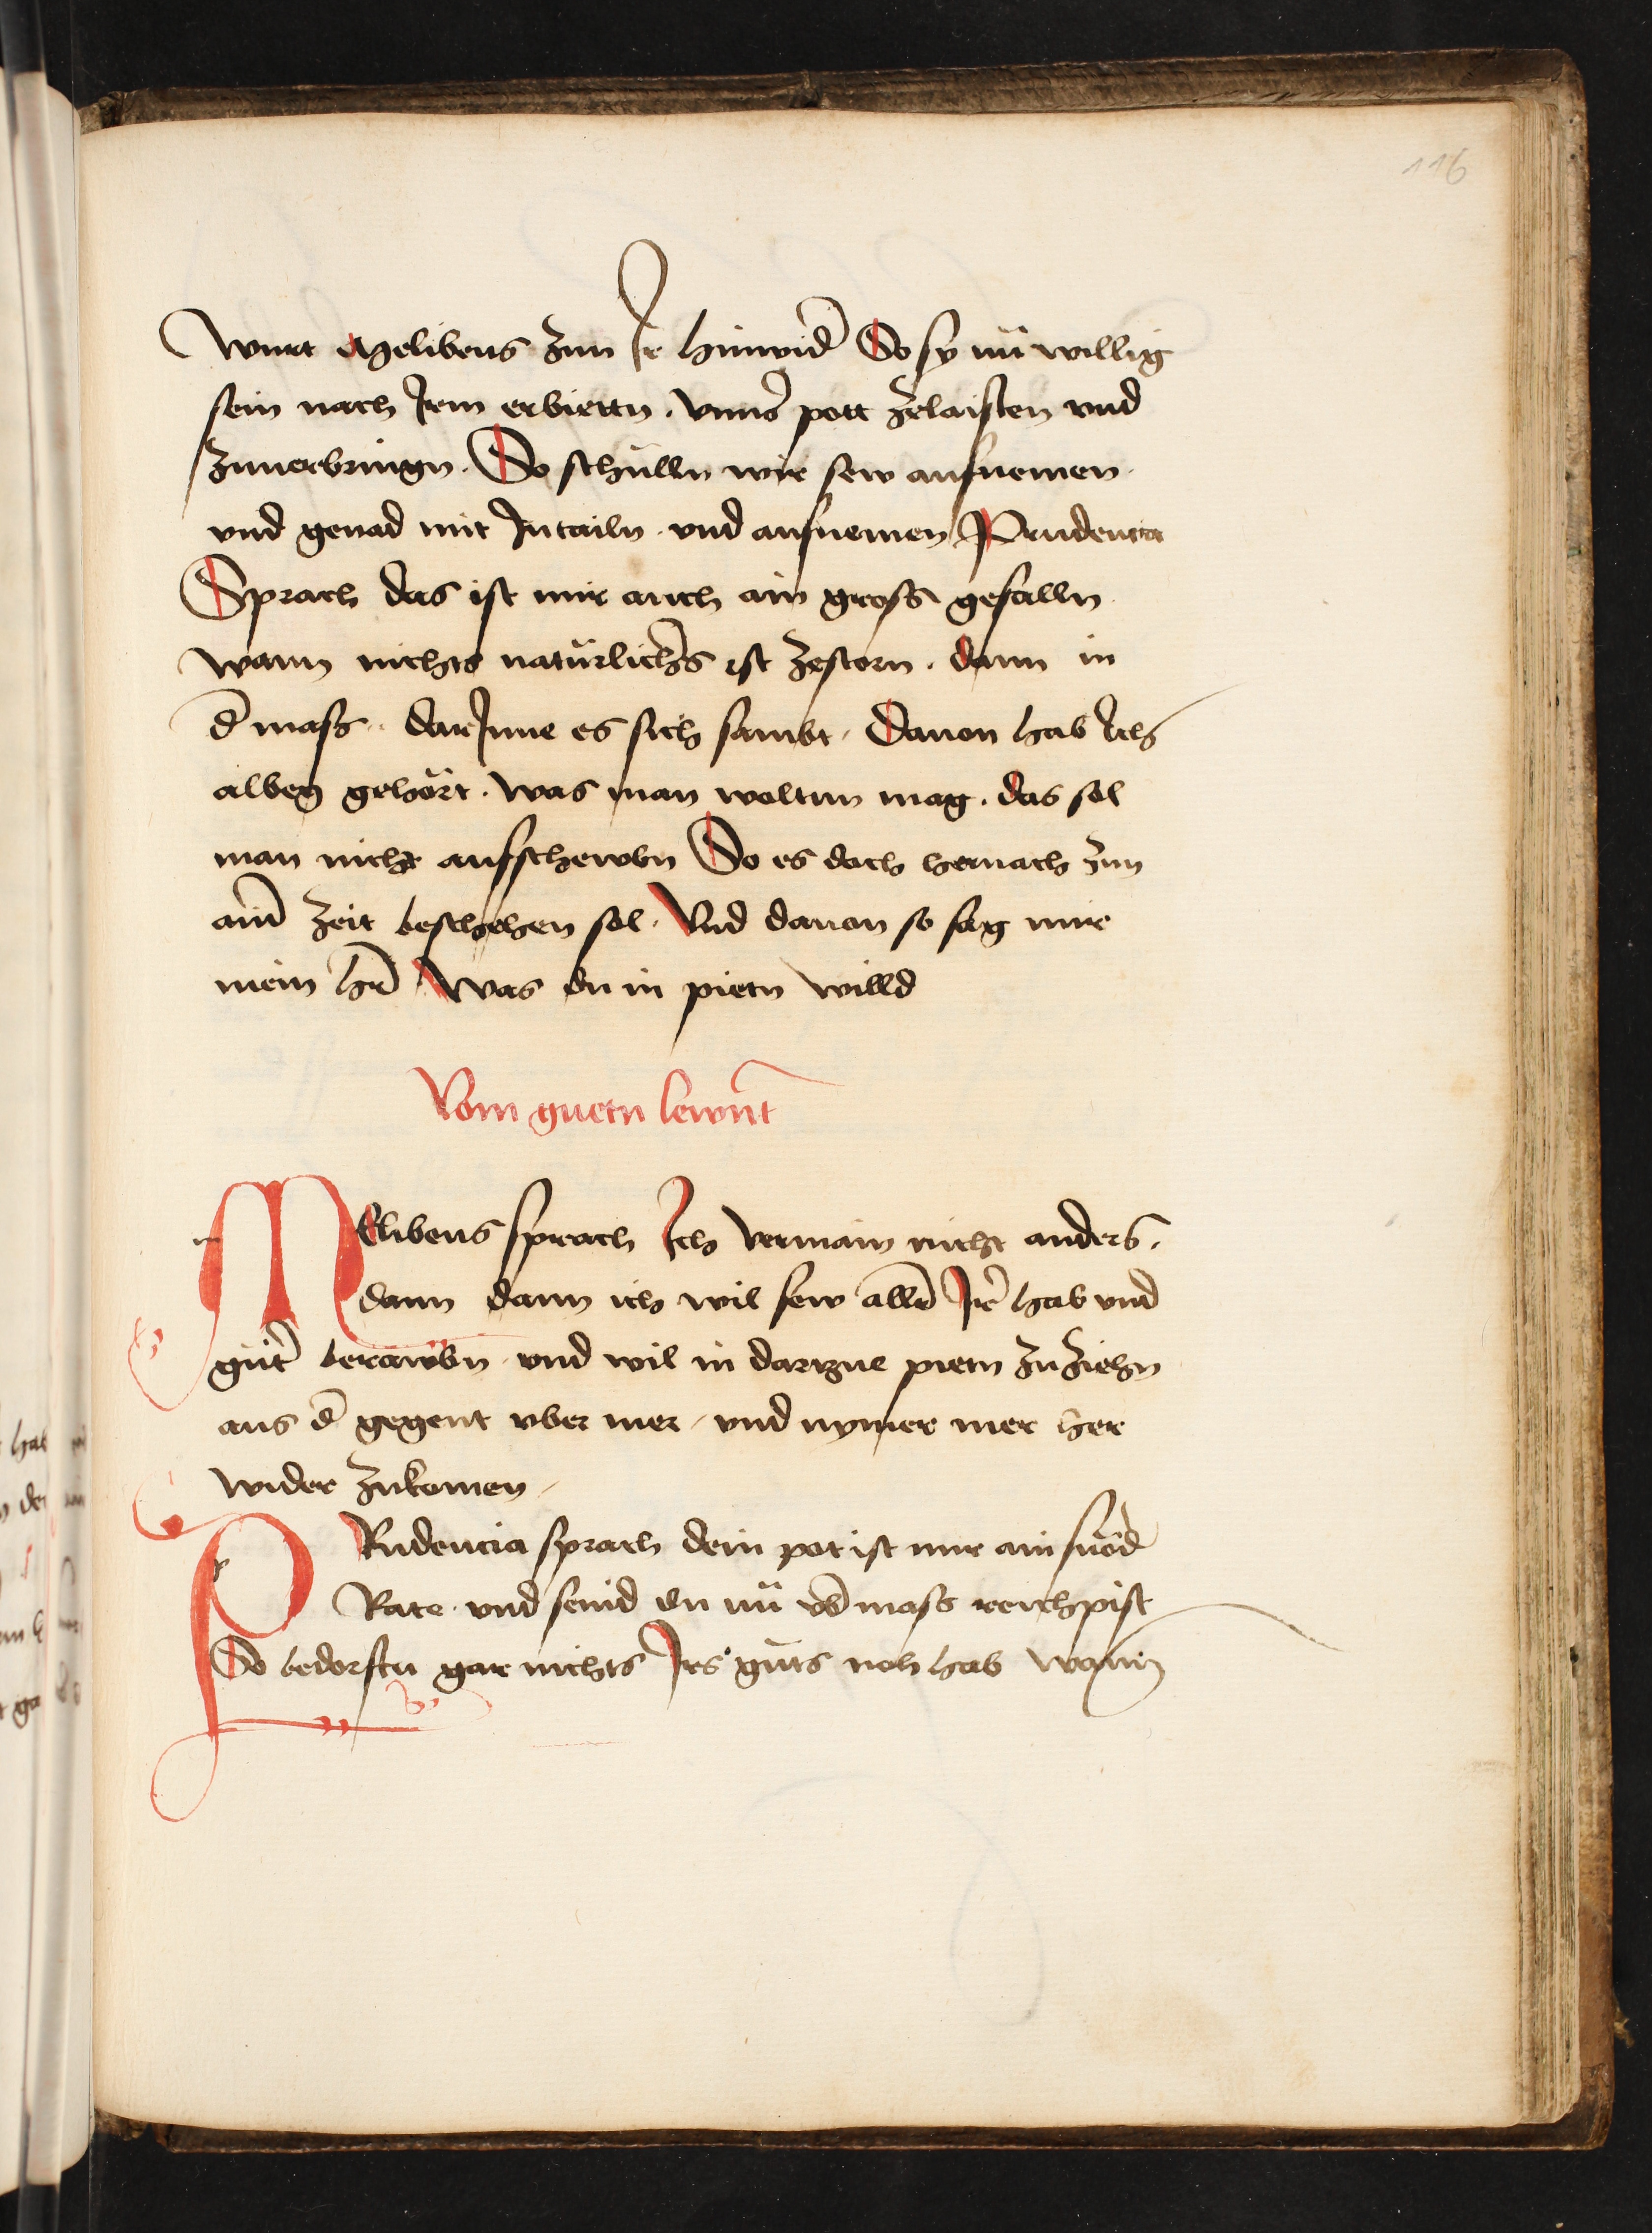 116
wurt Melibeus zun Ir hinwid̄ So sy nü willig
sein nach Irm erbiettn . vnns̄ pott zelaisten vnd
zuuerbringn . So schülln wir sew aufnemen
vnd genad mit Intailn . vnd aufnemen Prudencia
Sprach das ist mir auch ain gross gefalln
wann nichts natürlichs̄ ist zestorn . dann in
d̄ mass . darInne es sich sambt . Dauon hab Ich
albeg gehört . was man woltun mag . das sol
man nicht aufschewbn So es doch hernach zun
ain̄d zeit beschehen sol . Vnd dauon so sag mir
mein hr̄ Was du in pietn willd
Vom guetn lewn̄t
MElibeus sprach Ich vermain nicht anders .
dann dann ich wil sew aller̄ Ir̄ hab vnd
güt̄ berawbn . vnd wil in dartzue pietn zuziehn
aus d̄ gegent vber mer / vnd nymer mer her
wider zukomen /
PRudencia sprach dein pot ist mir ain snöd̄
Rate . vnd seind du nü vb̄ mass reichpist
So bedorftu gar nichts Irs güts noh hab wann